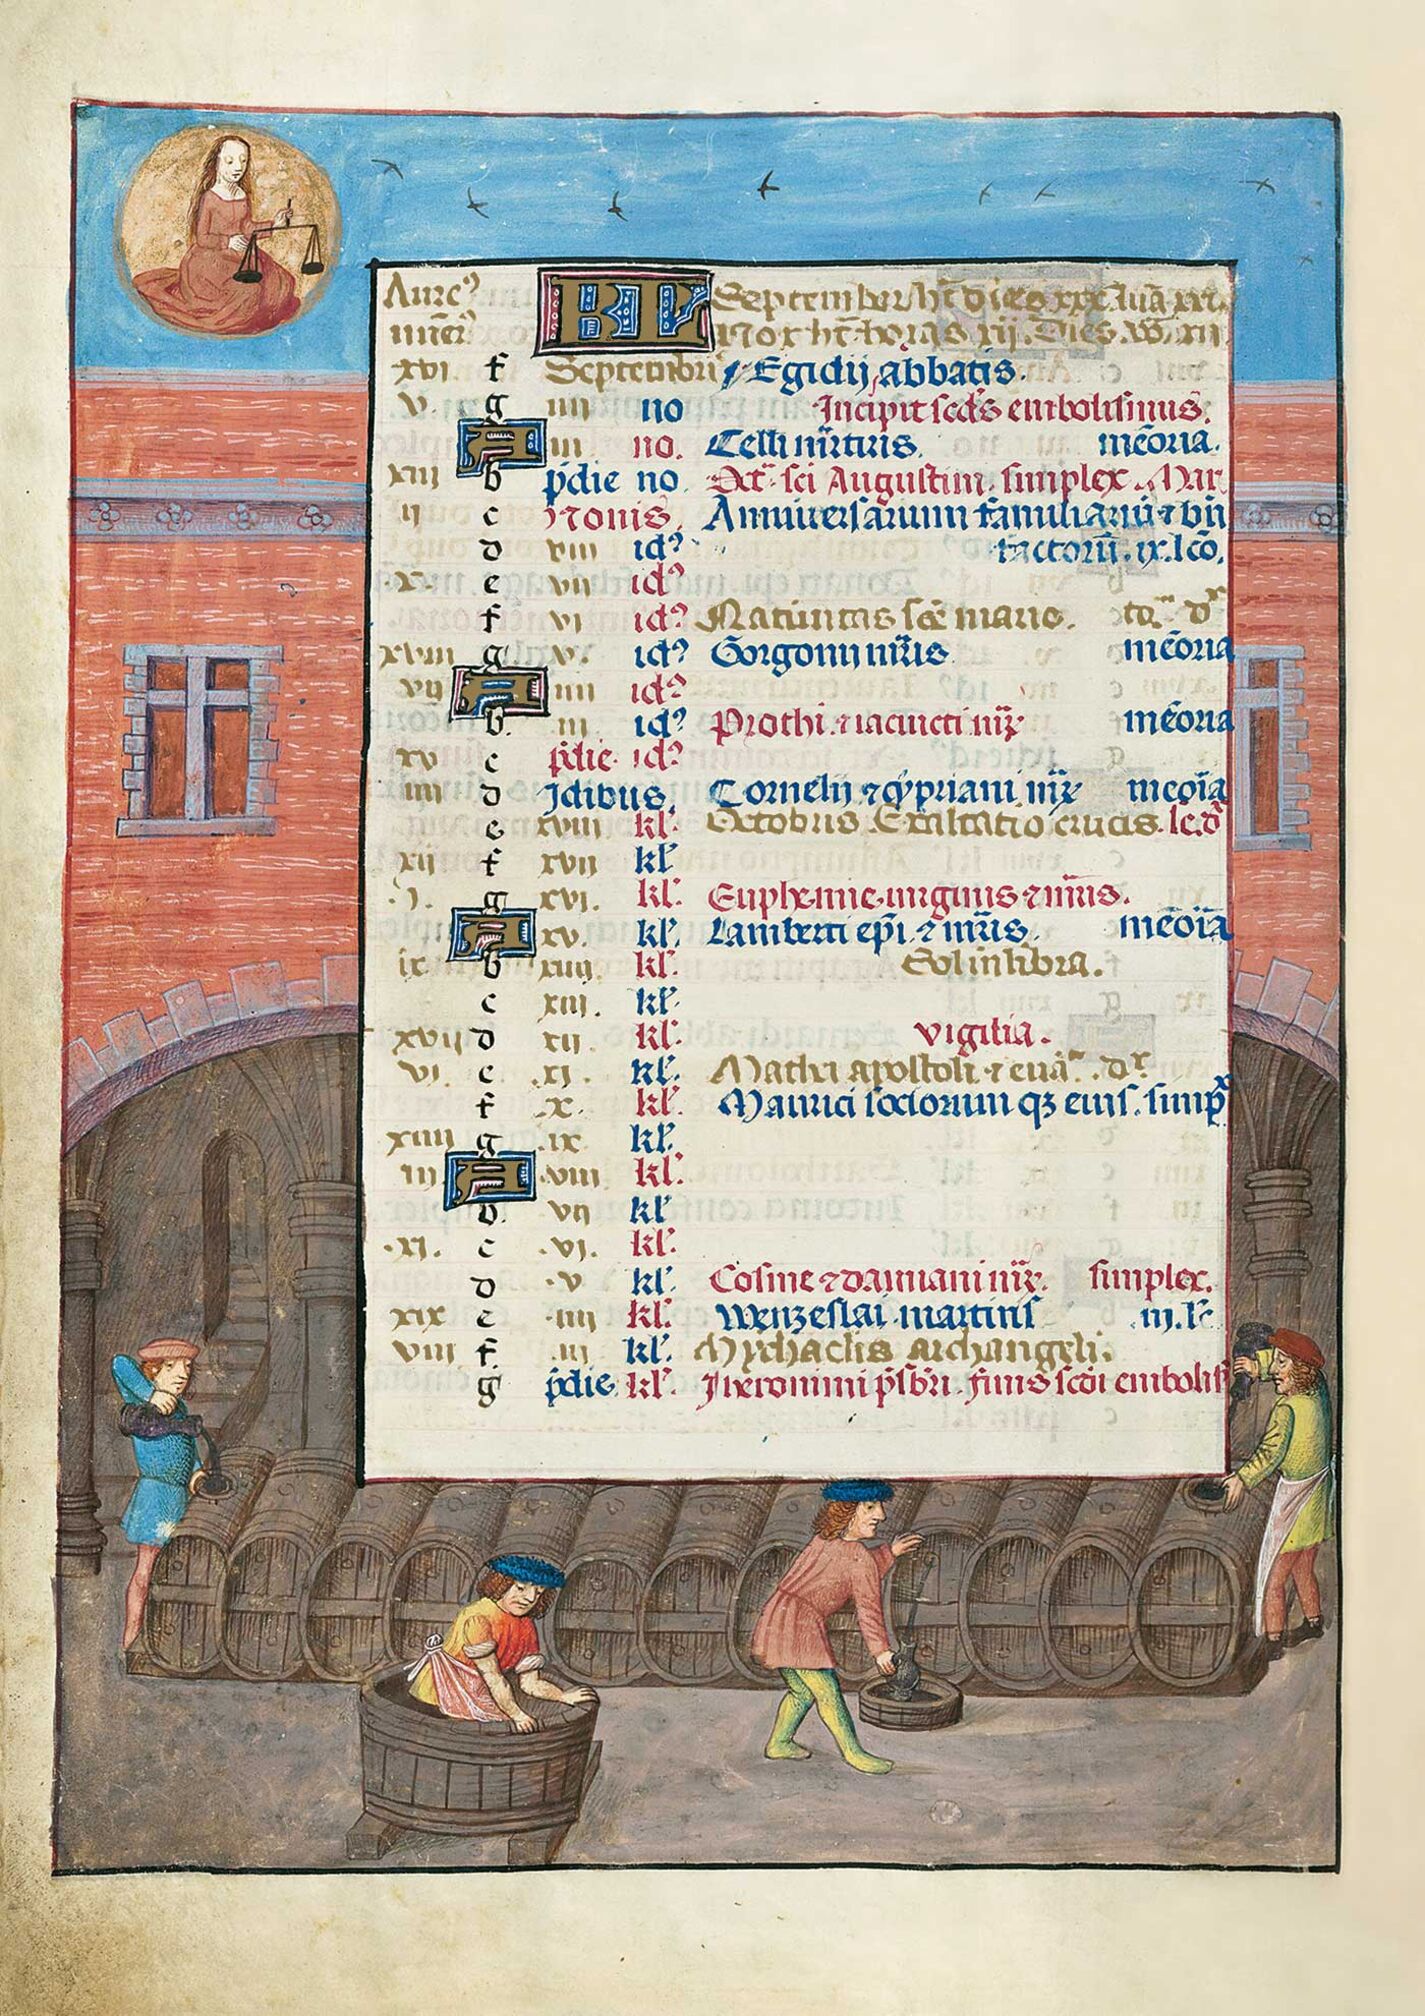 Aure⁹ KL September h̄t dies xxx. luā xxx.
nūer⁹ Nox h̄t horas xij. Dies v̄o xij
xvi. f Septembris Egidij abbatis.
v. g iiii no Incipit scd's embolismus.
A iii no. Celli m̄rtiris. mēoria.
xiii b p̄die no Oct̄ sci Augustini. simplex. Mar
ii c Nonis. Anniversarium familiariū ⁊ bn̄
d viii id⁹ factorū. ix. lcō.
x. e vii id⁹
f vi id⁹ Nativitas scē marie. to᷒ d᷒
xviii g v. id⁹ Gorgonij m̄ris mēoria
vij A iiii id⁹
b. iii id⁹ Prothi. ⁊ iacincti m̄r̄ mēoria
xv c p̄die id⁹
iiii d Idibus. Cornelij ⁊ cypriani m̄r̄ meōia
e xviii kl'. Octobris. Exaltatio crucis. le. d᷒
xij f xvij kl'.
.i. g xvi. kl'. Euphemie. virginis ⁊ m̄ris.
A xv. kl'. Lamberti ep̄i. ⁊ m̄ris. meōia
ix b xiiij kl'. Sol in libra.
c xiii. kl'.
xvij d xii. kl'. vigilia.
vi. e .xi. kl'. Mathei apostoli ⁊ evā᷒. d᷒
f .x. kl'. Maurici sociorum qȝ eius. simp̄x
xiiii g ix kl'.
iii. A viii kl'.
b. vij kl'
.xi. c .vi. kl'.
d .v kl'. Cosme ⁊ damiani m̄r̄. simplex.
xix e .iiii kl'. Wenzeslai. martiris iii. lc̄
viii f .iii kl'. Mychaelis archangeli.
g p̄die kl'. Iheronimi p̄sbri. finis scdi embolis